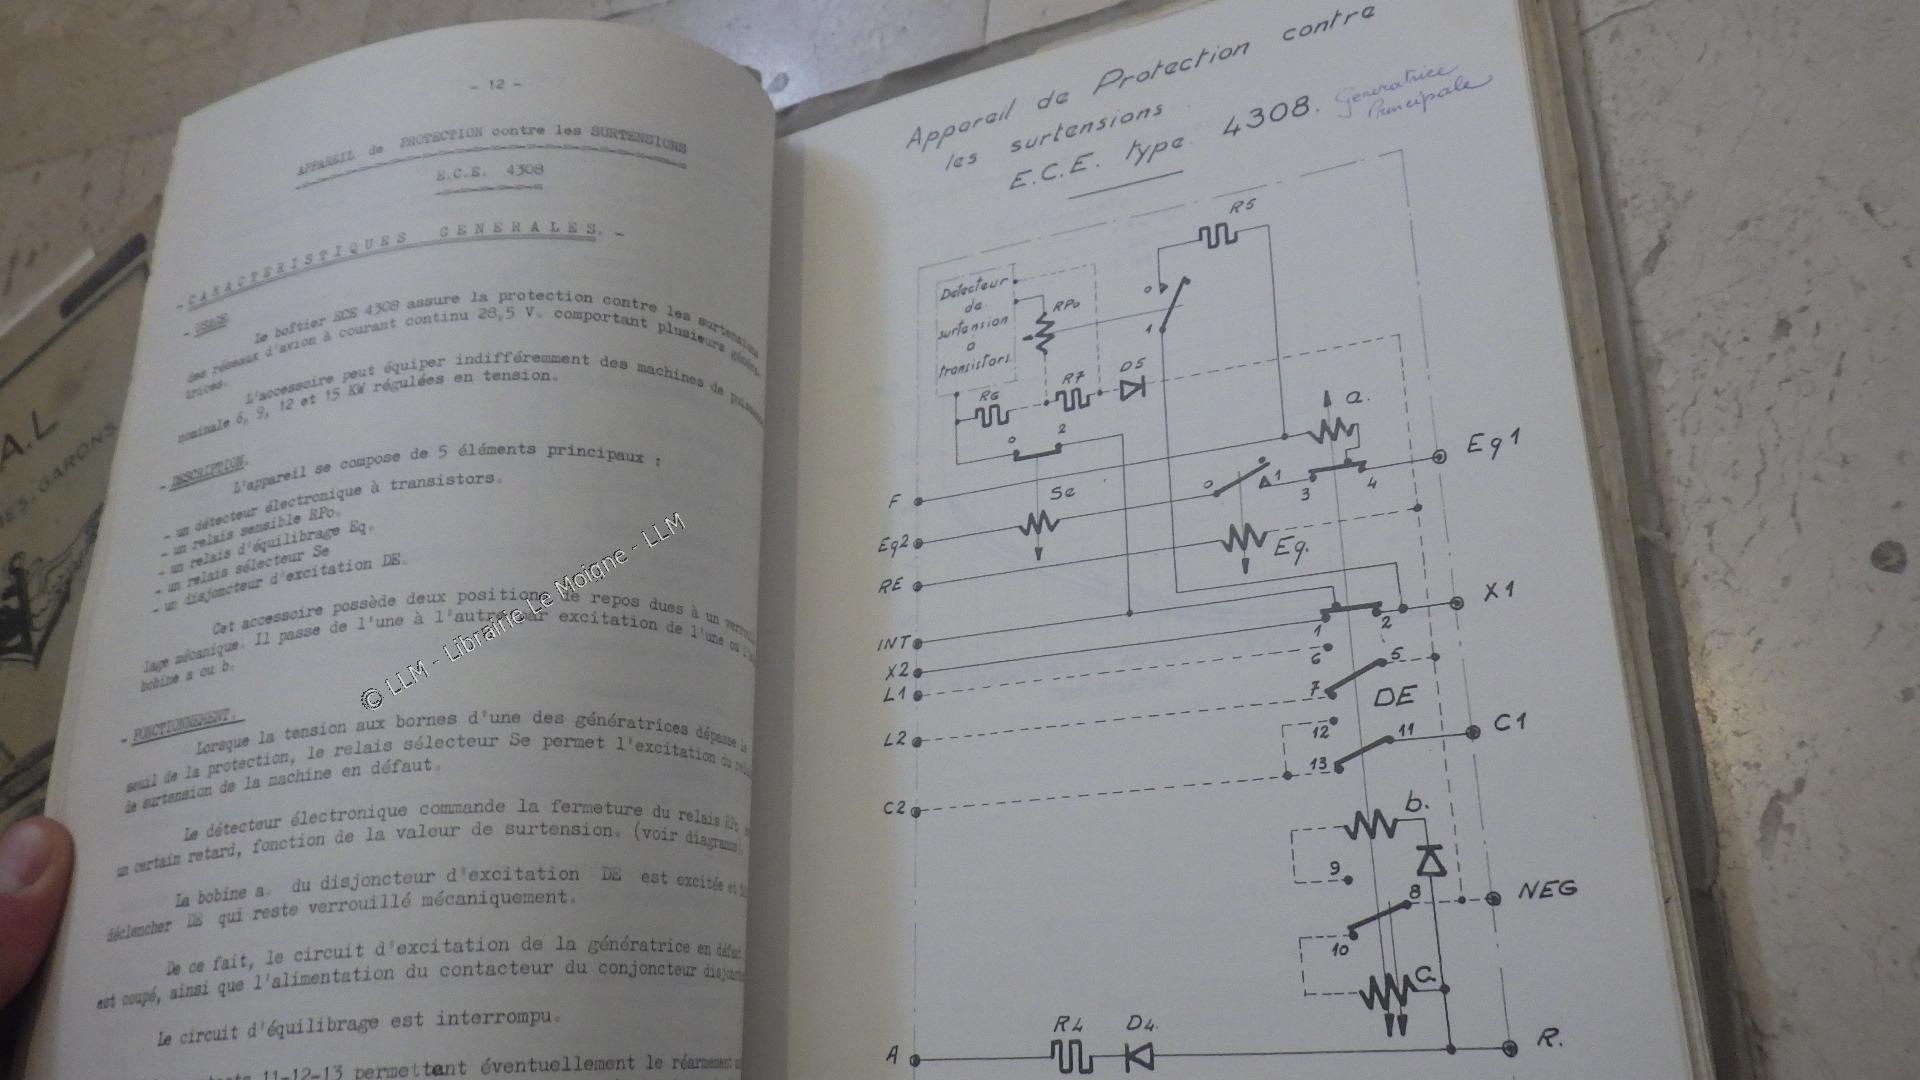 - 12 -
APPAREIL de PROTECTION contre les SURTENSIONS
E.C.E. 4308
- CARACTERISTIQUES GENERALES. -
- USAGE.
Le boîtier ECE 4308 assure la protection contre les surtensions
des réseaux d'avion à courant continu 28,5 V. comportant plusieurs
trices.
L'accessoire peut équiper indifféremment des machines de
nominale 6, 9, 12 et 15 KW régulées en tension.
- DESCRIPTION.
L'appareil se compose de 5 éléments principaux :
- un détecteur électronique à transistors.
- un relais sensible RPo.
- un relais d'équilibrage Eq.
- un relais sélecteur Se
- un disjoncteur d'excitation DE.
Cet accessoire possède deux positions de repos dues à un
lage mécanique. Il passe de l'une à l'autre par excitation de l'une ou
bobine a ou b.
- FONCTIONNEMENT.
Lorsque la tension aux bornes d'une des génératrices dépasse
seuil de la protection, le relais sélecteur Se permet l'excitation du
de surtension de la machine en défaut.
Le détecteur électronique commande la fermeture du relais RPo
un certain retard, fonction de la valeur de surtension. (voir diagramme)
La bobine a. du disjoncteur d'excitation DE est excitée et
déclencher DE qui reste verrouillé mécaniquement.
De ce fait, le circuit d'excitation de la génératrice en défaut
est coupé, ainsi que l'alimentation du contacteur du conjoncteur
Le circuit d'équilibrage est interrompu.
11-12-13 permettant éventuellement le réarmement
© LLM - Librairie Le Moigne - LLM
A.L
GARONS
Appareil de Protection contre
les surtensions
E.C.E. type 4308.
Generatrice
Principale
R5
Detecteur
de
surtension
a
transistors.
RPo
o
1
R6
R7
D5
o
2
a.
Eq 1
F
Se
o
1
3
4
Eq2
Eq.
RE
X1
INT
1
2
X2
6
5
L1
7
DE
L2
12
11
C1
13
C2
b.
9
8
NEG
10
a
R4
D4.
A
R.